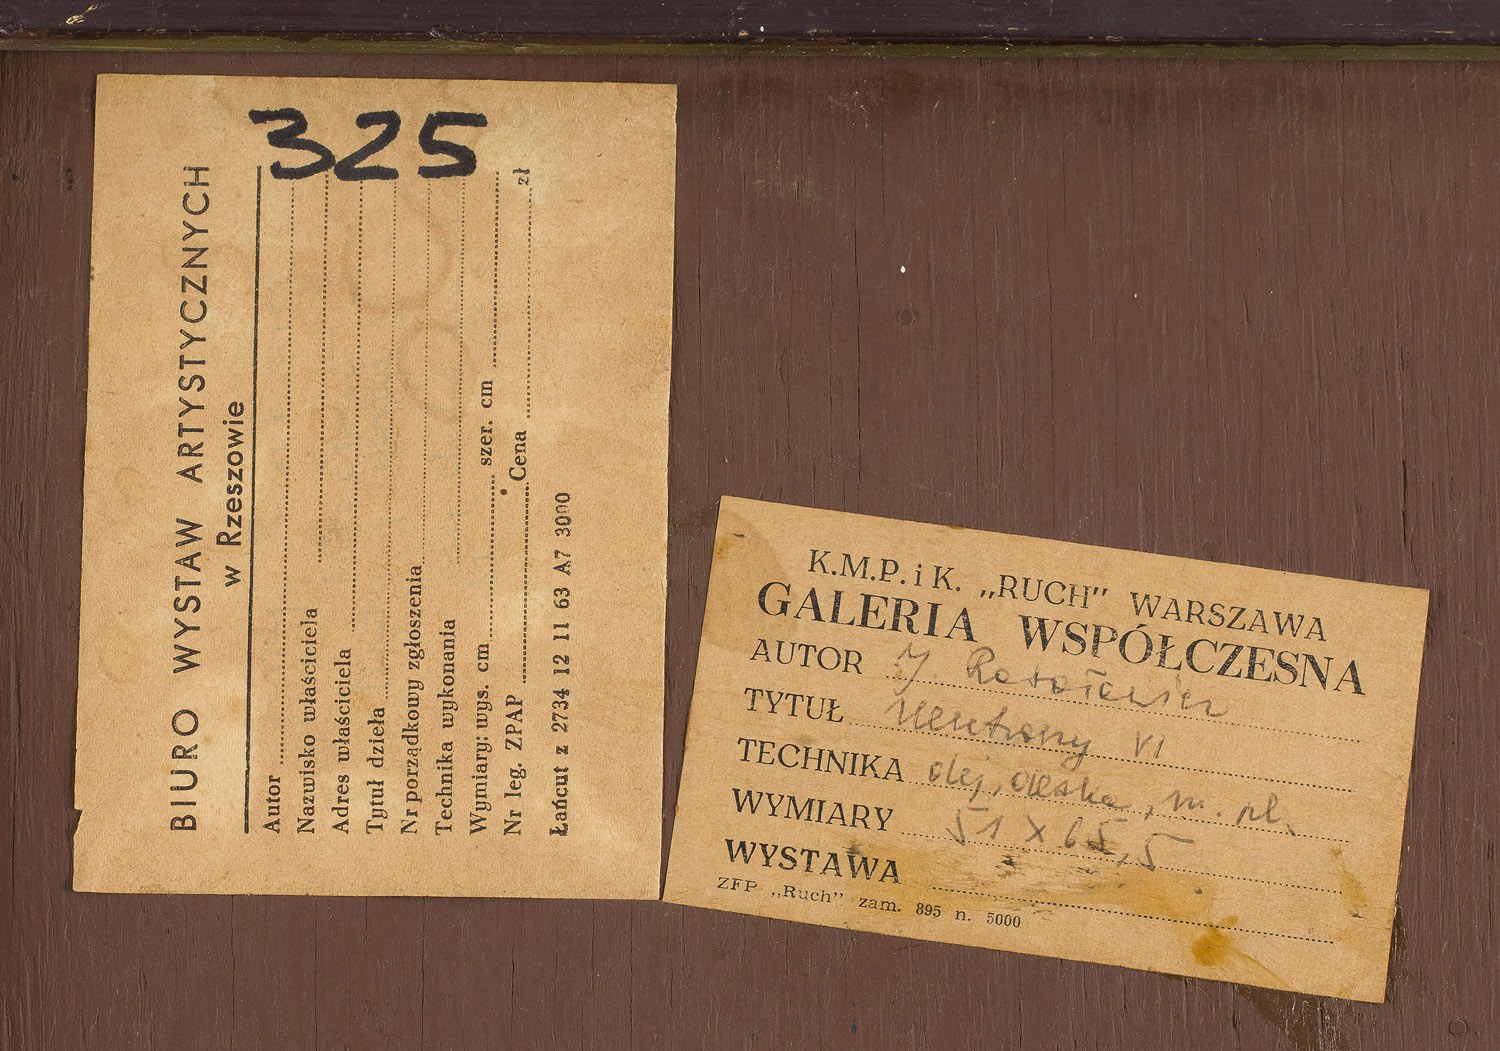 325
BIURO WYSTAW ARTYSTYCZNYCH
w Rzeszowie
Autor
Nazwisko właściciela
Adres właściciela
Tytuł dzieła
Nr porządkowy zgłoszenia
Technika wykonania
Wymiary: wys. cm szer. cm
Nr leg. ZPAP Cena zł
Łańcut z 2734 12 11 63 A7 3000
K.M.P. i K. „RUCH" WARSZAWA
GALERIA WSPÓŁCZESNA
AUTOR J. Rosołowicz
TYTUŁ Neutrony VI
TECHNIKA olej, deska, m. pl.
WYMIARY 51 x 65,5
WYSTAWA
ZFP „Ruch" zam. 895 n. 5000